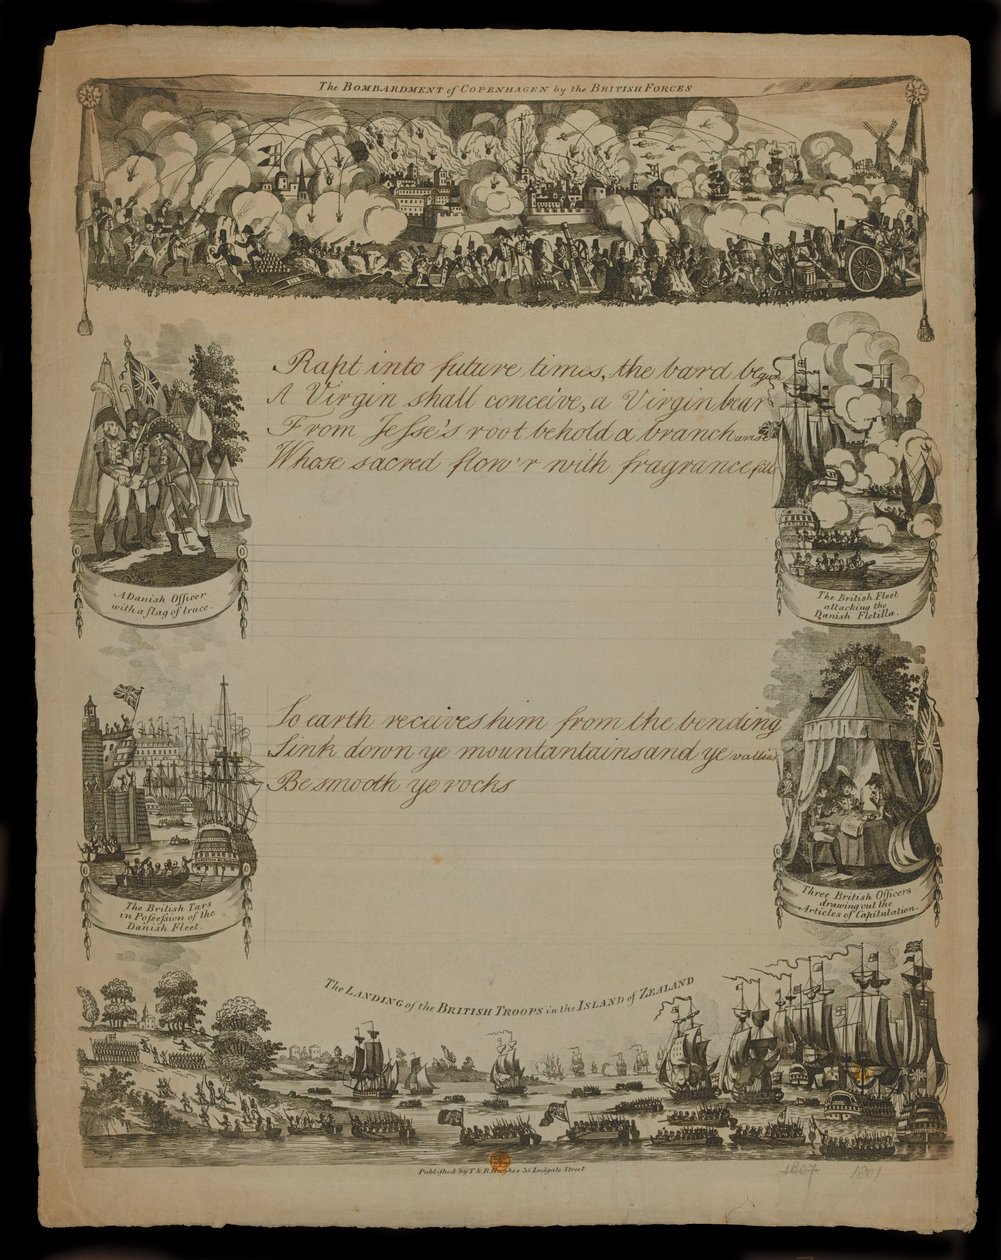 The BOMBARDMENT of COPENHAGEN by the BRITISH FORCES
Rapt into future times, the bard begun
A Virgin shall conceive, a Virgin bear
From Jesse's root behold a branch arise
Whose sacred flow'r with fragrance fills
A Danish Officer
with a flag of truce.
The British Fleet
attacking the
Danish Flotilla.
So earth receives him from the bending
Sink down ye mountantains and ye vallies
Be smooth ye rocks
The British Tars
in Possession of the
Danish Fleet.
Three British Officers
drawing out the
Articles of Capitulation.
The LANDING of the BRITISH TROOPS in the ISLAND of ZEALAND
Published by T & R Hughes 35 Ludgate Street
1807